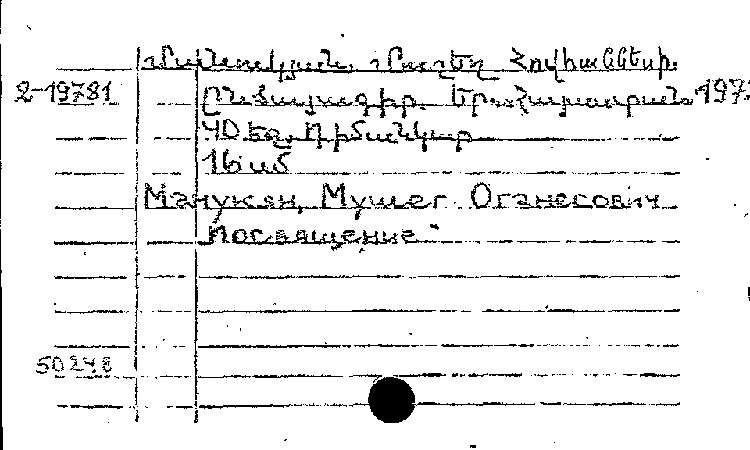 Մանուկյան, Մուշեղ Հովհաննեսի.
2-19781 Ընծայագիր. Եր., Հայաստան, 197
40 էջ. Դիմանկար
16 սմ
Манукян, Мушег Оганесович
Посвящение
50248